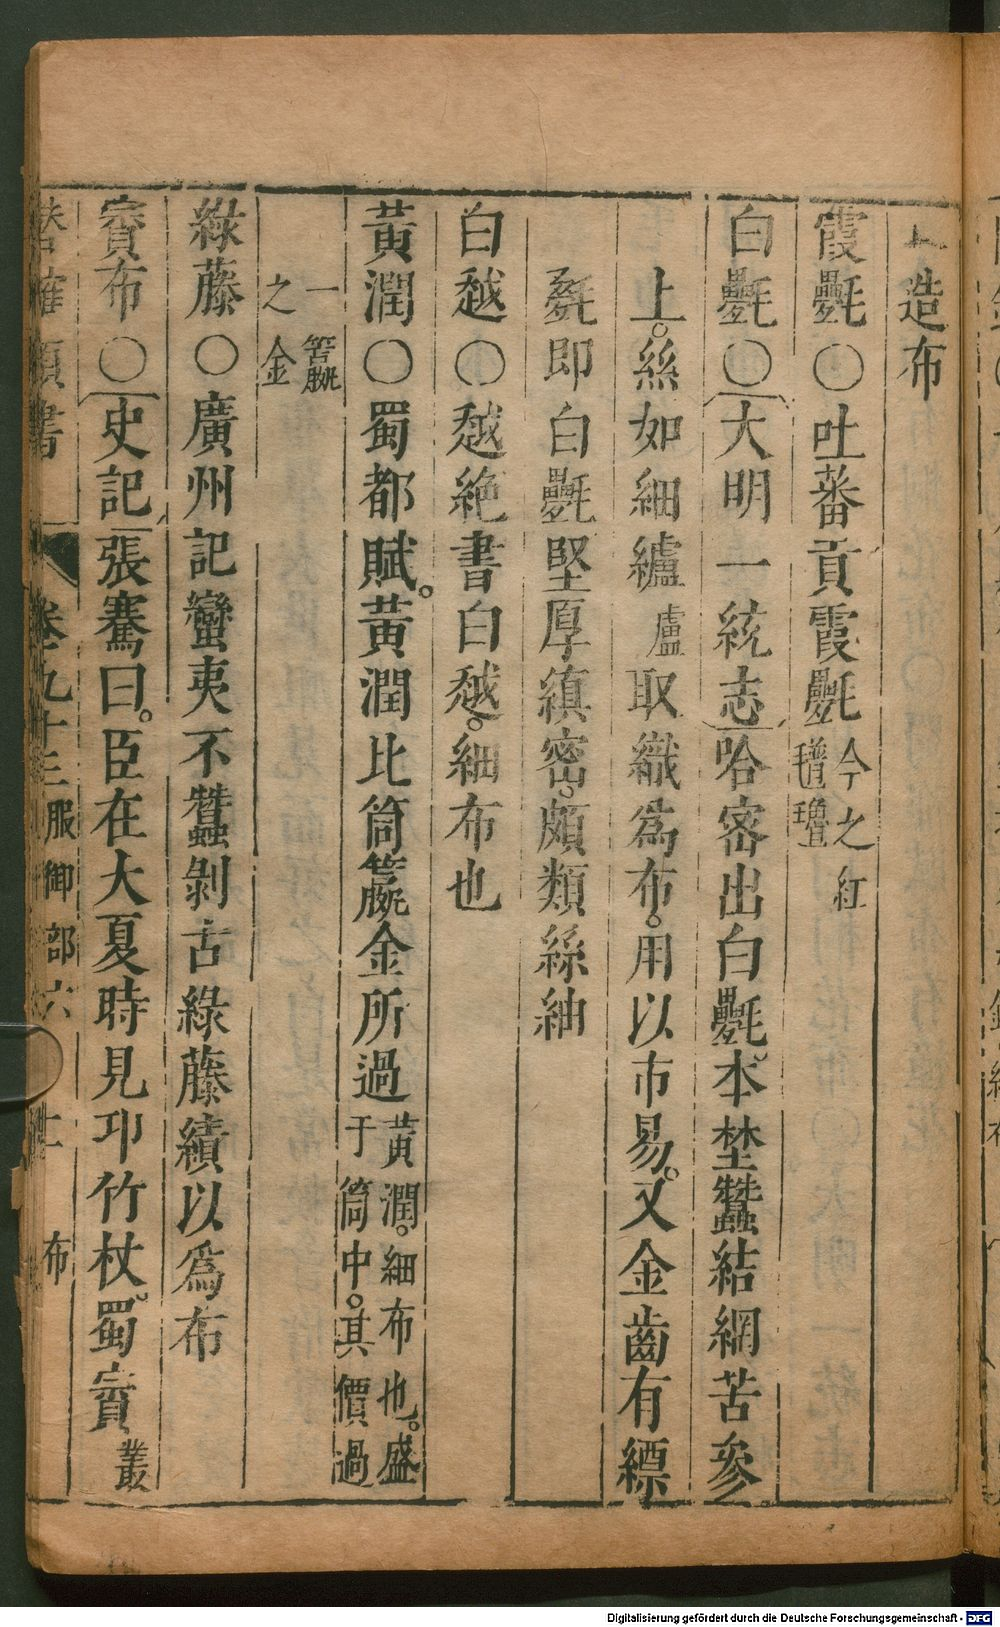 上造布
霞氎〇吐蕃貢霞氎今之紅氆氌
白氎〇大明一統志哈密出白氎本埜蠶結網苦參
上。絲如細纑盧取織爲布。用以市易。又金齒有縹
㲲即白氎堅厚縝密。頗類絲紬
白越〇越絶書白越。細布也
黃潤〇蜀都賦。黃潤比筒籝金所過黃潤。細布也。盛于筒中。其價過
一籝之金
綠藤〇廣州記蠻夷不蠶剝古綠藤績以爲布
賨布〇史記張騫曰。臣在大夏時見邛竹杖蜀賨叢
類書 卷九十三服御部六 布
Digitalisierung gefördert durch die Deutsche Forschungsgemeinschaft - DFG